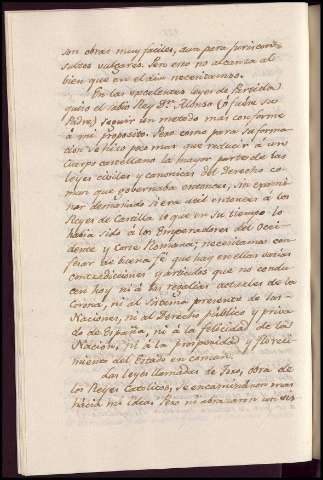 son obras muy faciles, aun para jurisconsultos
sultos vulgares. Pero esto no alcanza al
bien que en el dia necesitamos.
En las excelentes leyes de Partida
quiso el sabio Rey Dn. Alonso (ó fuese su
Padre) seguir un metodo mas conforme
á mi proposito. Pero como para su forma-
cion se hizo poco mas que reducir á un
Cuerpo castellano la mayor parte de las
leyes civiles y canonicas del derecho co-
mun que governaba entonces, sin exami-
nar demasiado si era util entonces á los
Reyes de Castilla lo que en su tiempo lo
habia sido á los Emperadores del Occi-
dente y Curia Romana; necesitamos con-
fesar de buena fé que hay en ellas varias
contradicciones y articulos que no condu-
cen hoy ni á las regalias actuales de la
Corona, ni al Sistema presente de las
Naciones, ni al derecho público y priva-
do de España, ni á la felicidad de la
Nacion, ni á la prosperidad y flore-
cimiento del Estado en comun.
Las leyes llamadas de Toro, obra de
los Reyes Catolicos, se encaminaron mas
hácia mi idea. Pero ni abrazaron un sis-